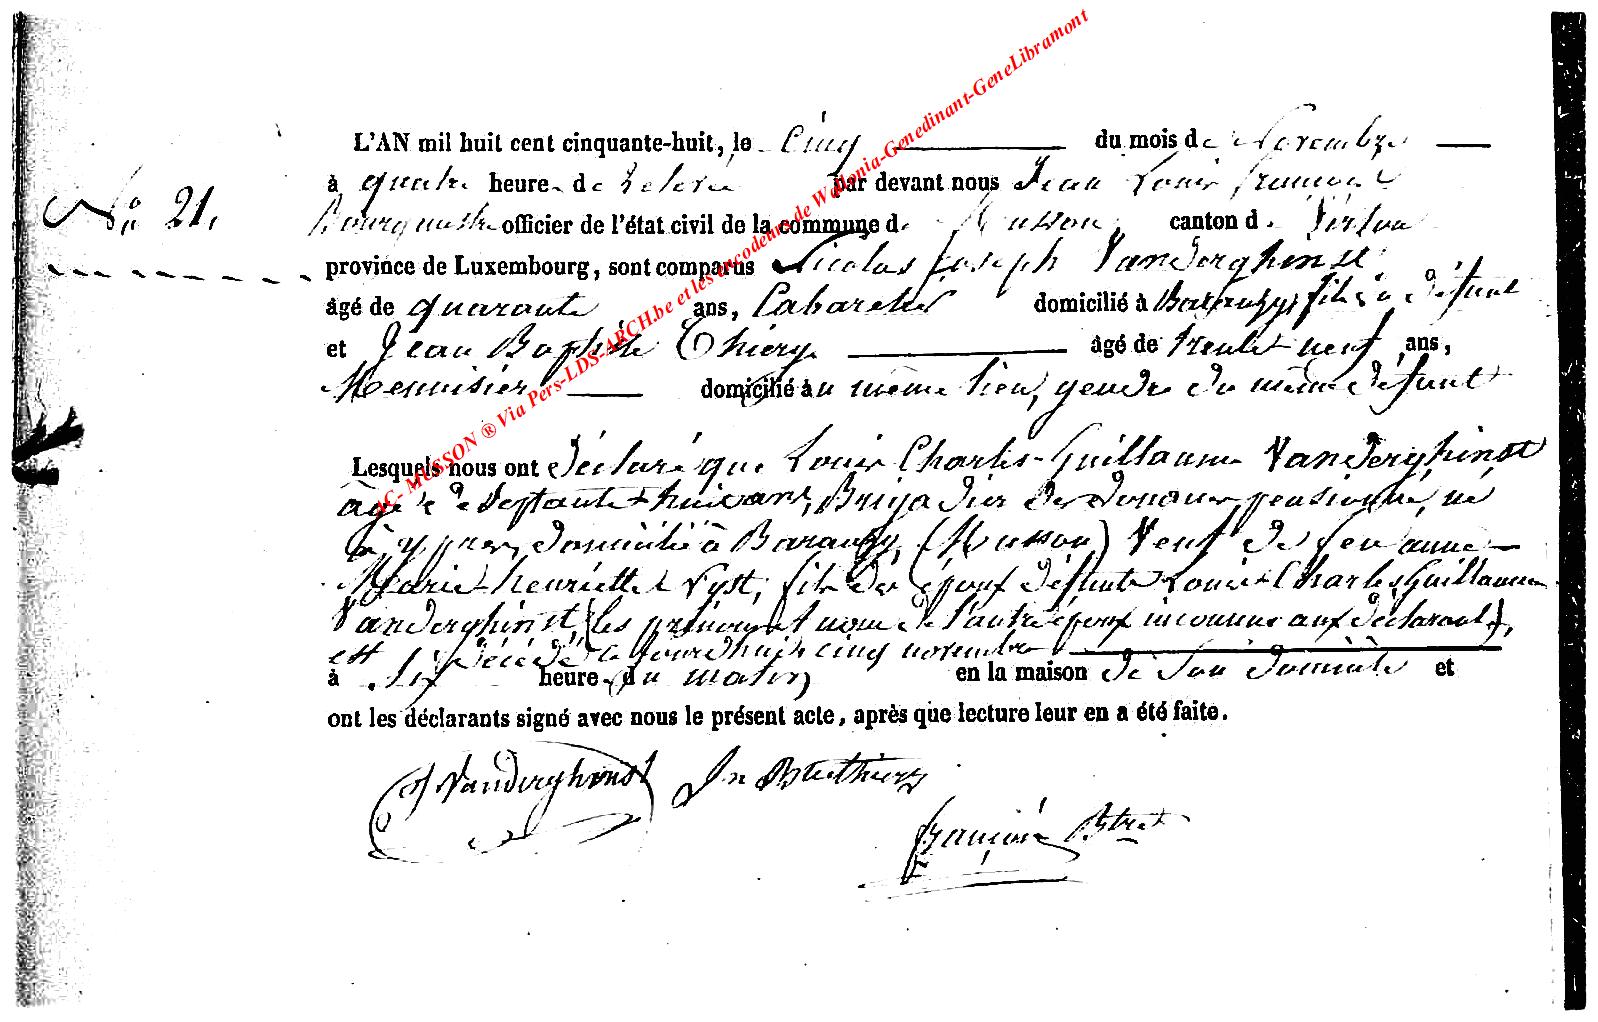 AC- MUSSON ® Via Pers-LDS-ARCH.be et les encodeurs de Wallonia-Genedinant-GeneLibramont
L'AN mil huit cent cinquante-huit, le Cinq du mois de Novembre
à quatre heure de relevée par devant nous Jean Louis François
No 21.
Bourgmestre officier de l'état civil de la commune de Musson, canton de Virton
province de Luxembourg, sont comparus Nicolas Joseph Vanderghinst
âgé de quarante ans, Cabaretier domicilié à Baranzy, fils du défunt
et Jean Baptiste Thiery âgé de trente neuf ans,
Menuisier domicilié au même lieu, gendre du même défunt
Lesquels nous ont déclaré que Louis Charles Guillaume Vanderghinst
âgé de septante huit ans, Brigadier des Douanes, pensionné, né
à Ypres, domicilié à Baranzy, (Musson) Veuf de feu anne
Marie henriette Vyst, fils des époux défunts Louis Charles Guillaume
Vanderghinst, (les prénoms et nom de l'autre époux inconnus aux déclarants),
est décédé cejourd'hui cinq novembre
à six heure du matin, en la maison de son domicile et
ont les déclarants signé avec nous le présent acte, après que lecture leur en a été faite.
Vanderghinst Jn Bte thiery
françois Btre